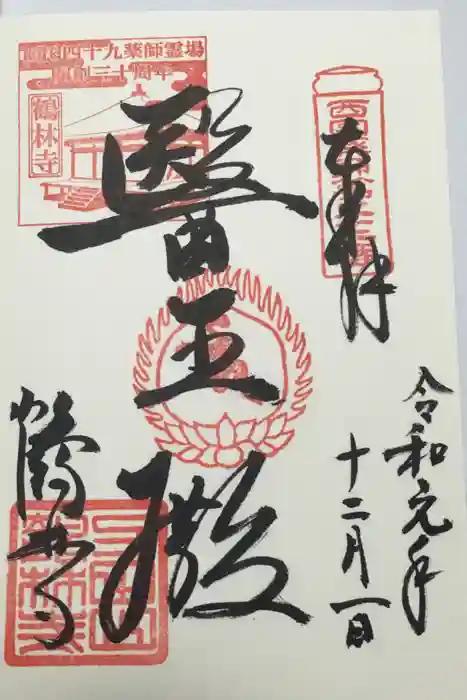 奉拝
令和元年
十二月一日
西国四十九薬師霊場
開創三十周年
鶴林寺
醫王殿
鶴林寺